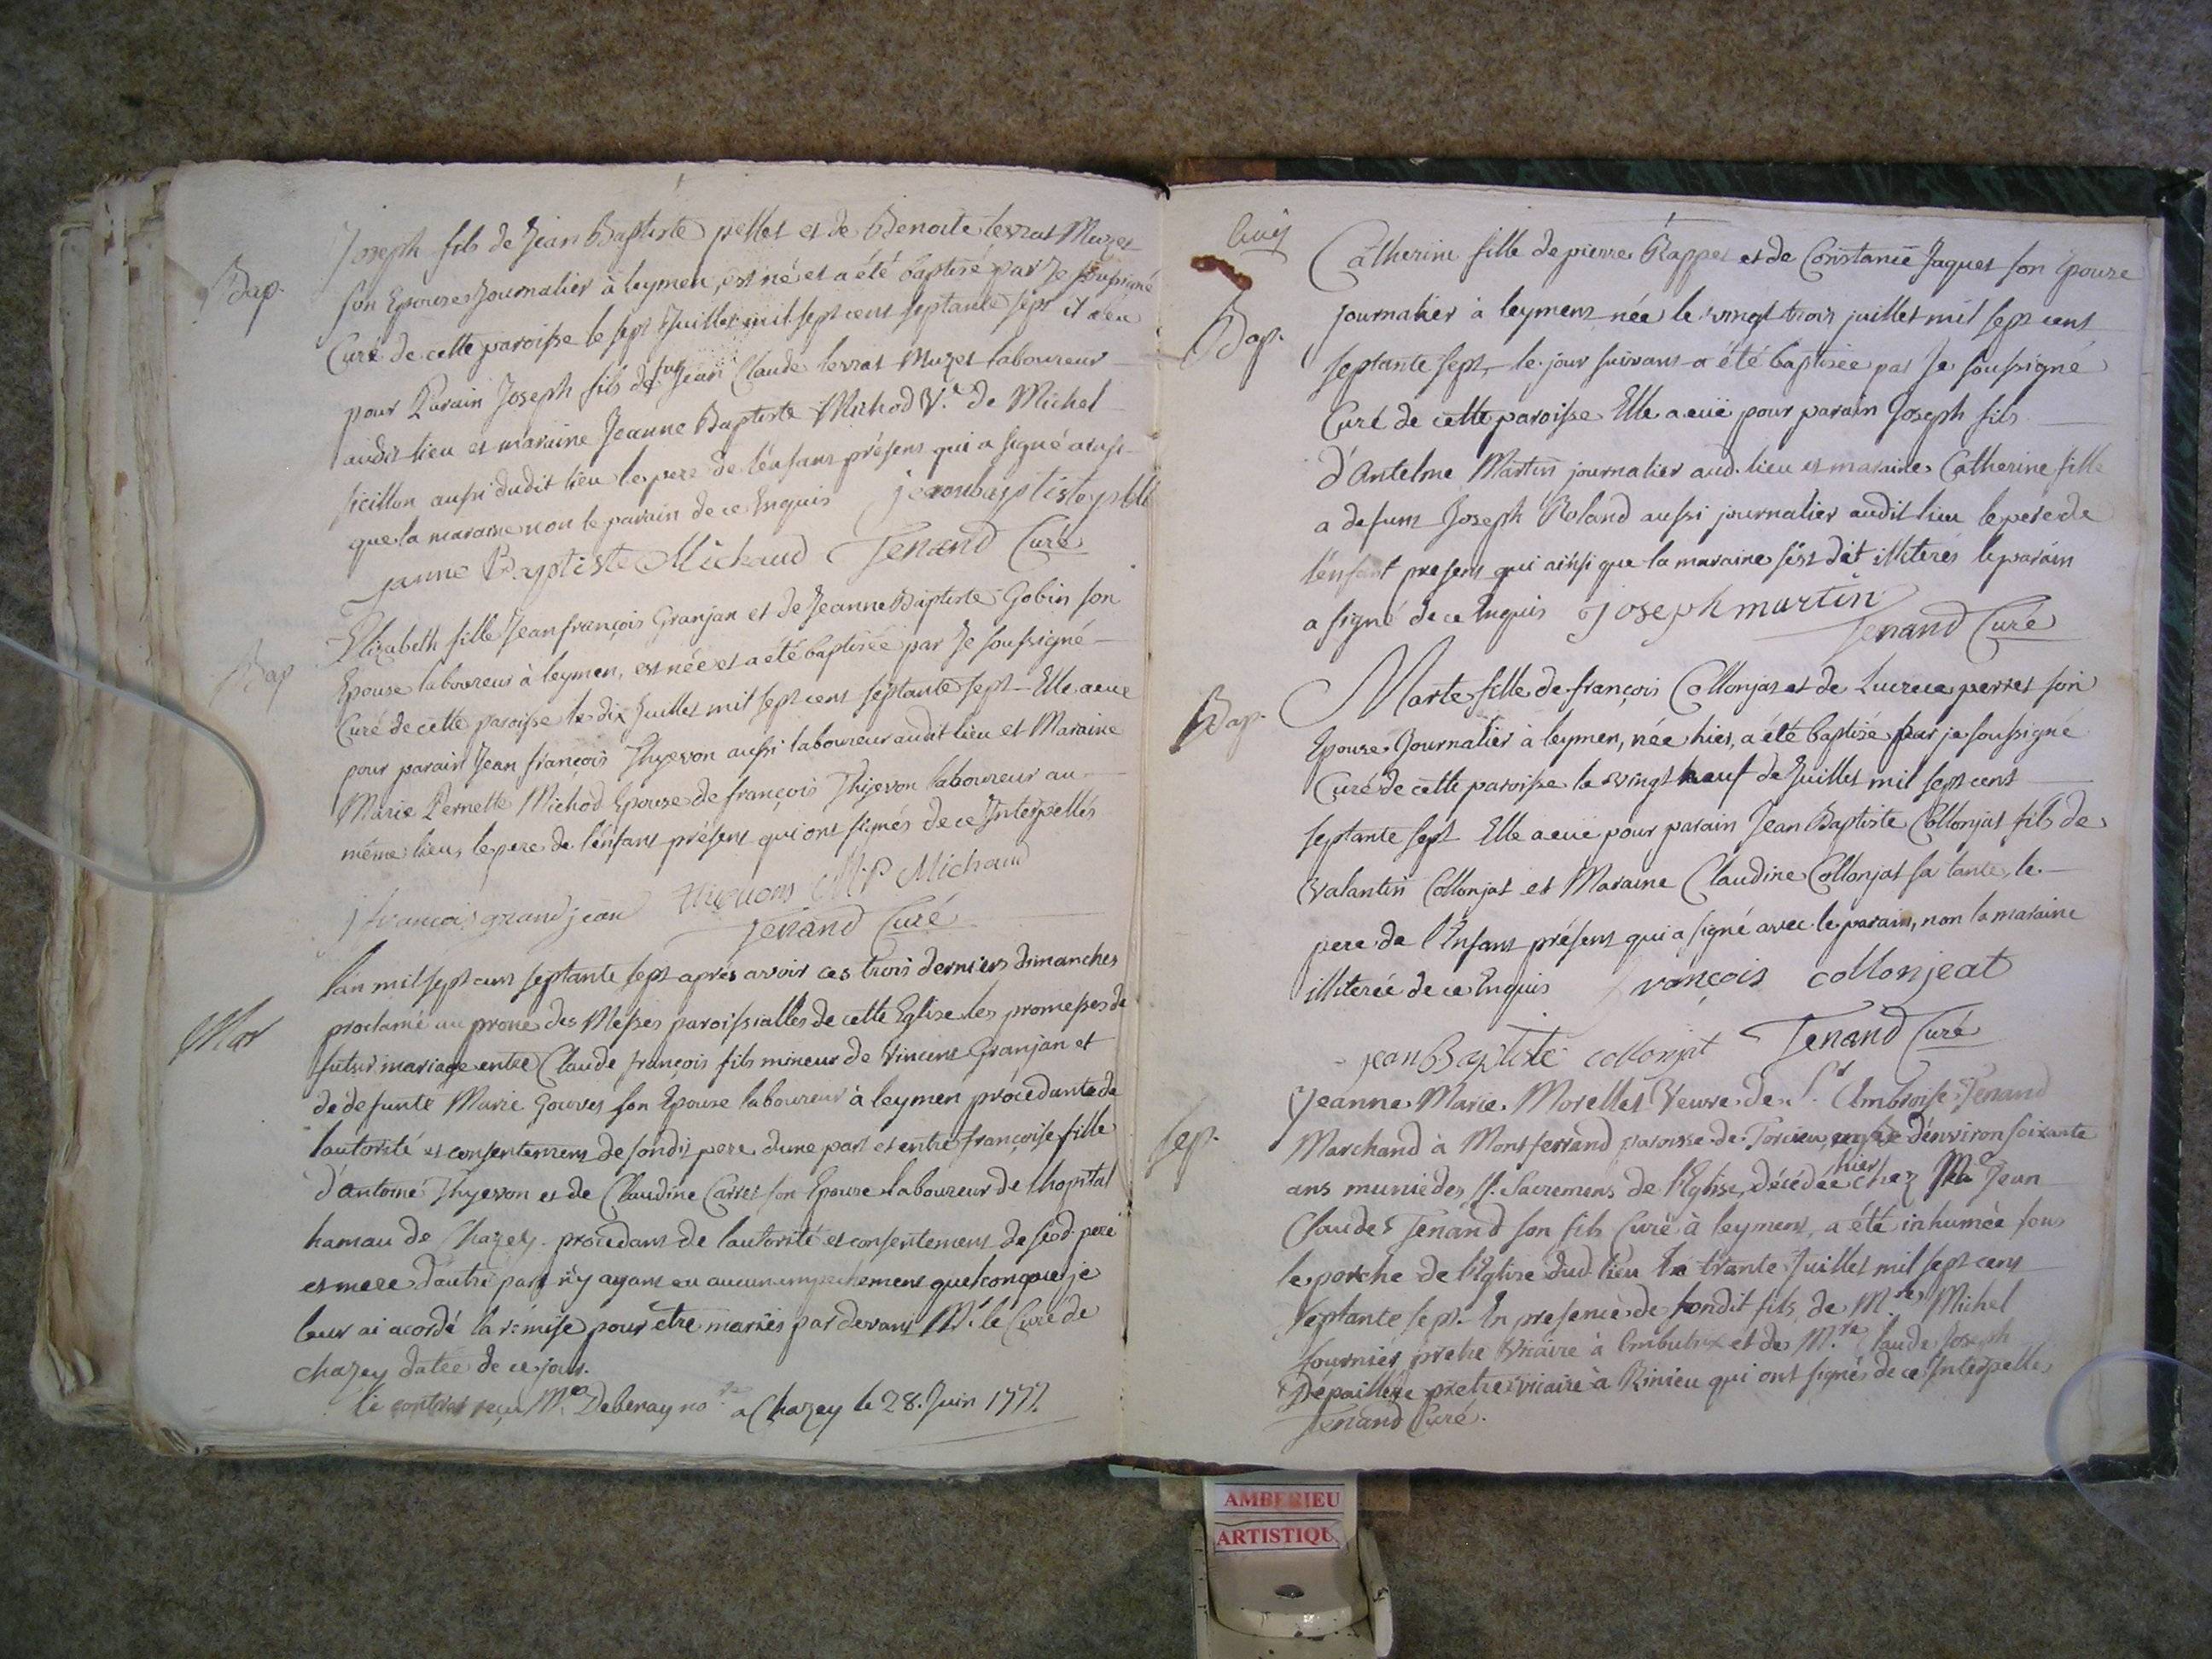 Joseph fils de Jean Baptiste pellet et de Benoite levrat Muzet
Bap.
son Epouse Journalier à leymen, est né et a été baptisé par Je soussigné
Curé de cette paroisse le sept Juillet mil sept cent septante sept il a eu
pour Parain Joseph fils de feu Jean Claude levrat Muzet laboureur
audit lieu et maraine Jeanne Baptiste Michod V.e de Michel
sicillon aussi dudit lieu le pere de l'enfant présent qui a signé ainsi
que la maraine non le parain de ce Enquis jeanbaptiste pellet
janne Baptiste Michaud Tenand Curé
Elizabeth fille Jean françois Granjan et de Jeanne Baptiste Gobin son
Bap
Epouse laboureur à leymen, est née et a été baptisée par Je soussigné
Curé de cette paroisse le dix Juillet mil sept cent septante sept Elle a eue
pour parain Jean françois Thyevon aussi laboureur audit lieu et Maraine
Marie Pernette Michod Epouse de françois Thyevon laboureur au
même lieu, le pere de l'enfant présent qui ont signés de ce Interpellés
j francois grandjean M.P Michaud
Tenand Curé
l'an mil sept cent septante sept après avoir ces trois derniers dimanches
Mar
proclamé au prone des Messes paroissialles de cette Eglise les promesses de
futur mariage entre Claude françois fils mineur de Vincent Granjan et
de defunte Marie Gourves son Epouse laboureur à leymen procedant de
l'autorité et consentement de sondit pere d'une part et entre françoise fille
d'antoine Thyevon et de Claudine Carret son Epouse laboureur de lhopital
hamau de Chazey procedant de l'autorité et consentement de sesd. pere
et mere d'autre part n'y ayant eu aucun empechement quelconque je
leur ai acordé la remise pour être mariés par devant Mr. le Curé de
chazey datée de ce jour.
le contrat reçu Me. Debenay no.re a Chazey le 28. Juin 1777.
Catherine fille de pierre Rappet et de Constance Jaquet son Epouse
Bap.
journalier à leymen née le vingt trois juillet mil sept cent
septante sept, le jour suivant a été baptisée par Je soussigné
Curé de cette paroisse Elle a euë pour parain Joseph fils
d'Antelme Martin journalier aud. lieu et maraine Catherine fille
a defunt Joseph Roland aussi journalier audit lieu le pere de
l'enfant présent qui ainsi que la maraine s'est dit illiterés le parain
a signé de ce Enquis joseph martin
Tenand Curé
Marte fille de françois Collonjat et de Lucrece perret son
Bap.
Epouse Journalier à leymen, née hier, a été baptisé par je soussigné
Curé de cette paroisse le vingt neuf de Juillet mil sept cent
septante sept Elle a euë pour parain Jean Baptiste Collonjat fils de
Valantin Collonjat et Maraine Claudine Collonjat sa tante, le
pere de l'Enfant présent qui a signé avec le parain, non la maraine
illiterée de ce Enquis françois collonjeat
jean Baptiste collonjat Tenand Curé
Jeanne Marie Morellet Veuve de Sr. Ambroise Tenand
Sep.
Marchand à Montferrand paroisse de Torcieu, agée d'environ soixante
ans munie des SS. Sacremens de l'Eglise, décédée hier chez Mre Jean
Claude Tenand son fils Curé à leyment, a été inhumée sous
le porche de l'Eglise dud. lieu le trante Juillet mil sept cent
septante sept. En presence de sondit fils, de M.re Michel
fournier pretre Vicaire à Ambutrix et de M.re Claude Joseph
Depaillere pretre vicaire à Rinieu qui ont signés de ce Interpellés
Tenand Curé.
AMBERIEU
ARTISTIQU